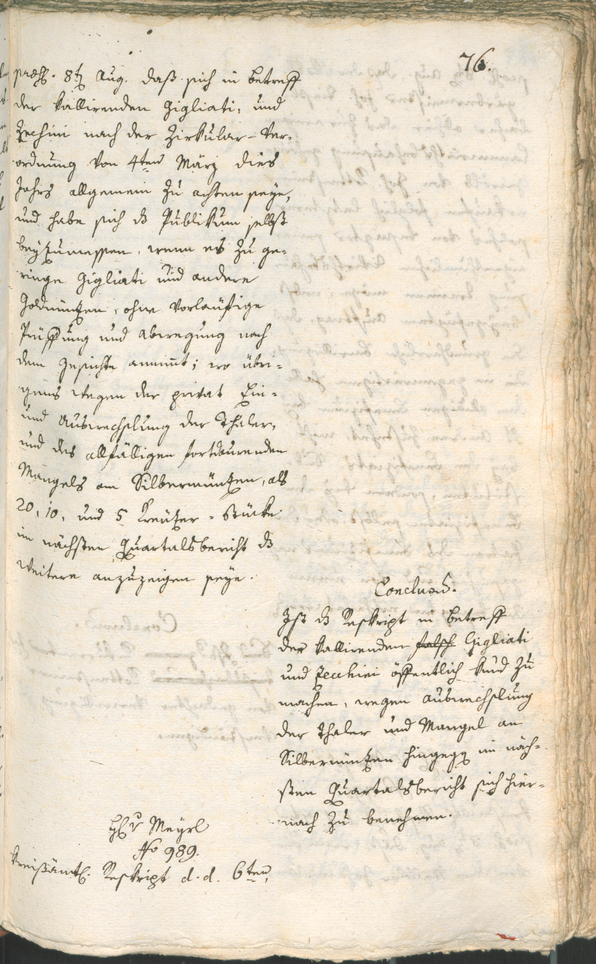 76.
præs. 8t Aug. daß sich in betreff
der kallirenden Gigliati, und
Zechini nach der Zirkular-Ver-
ordnung von 4ten März dies
Jahrs allgemein zu achten seye,
und habe sich ds Publikum selbst
beyzumessen, wenn es zu ge-
ringe Gigliati und andere
Goldmüntzen, ohne vorläufige
Prüffung und Abwegung nach
dem Gesichte annimt; wo übri-
gens wegen der privat Ein-
und Auswechslung der Thaler,
und des allfälligen fortdaurenden
Mangels an Silbermüntzen, als
20, 10, und 5 Kreutzer-Stücke
im nächsten Quartalsbericht ds
weitere anzuzeigen seye.
Conclusum.
Ist ds Reskript in betreff
der kallirenden falsch Gigliati
und Zecchini öffentlich kund zu
machen, wegen Auswechslung
der Thaler und Mangel an
Silbermüntzen hingegen im näch-
sten Quartalsbericht sich hier-
nach zu benehmen.
Hr Meyrl
No 989.
Kreisämtl. Reskript d. d. 6ten,